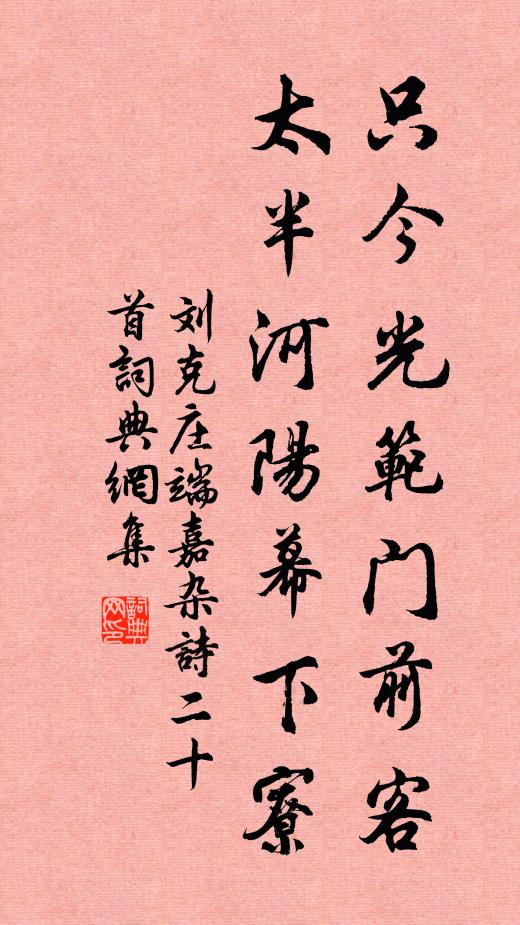 只今光範门前客
太半河陽幕下寮
刘克庄端嘉杂詩二十
首詞典網集
詞典网印